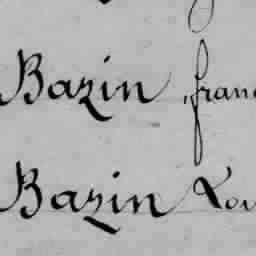 Bazin, franc
Bazin Lou